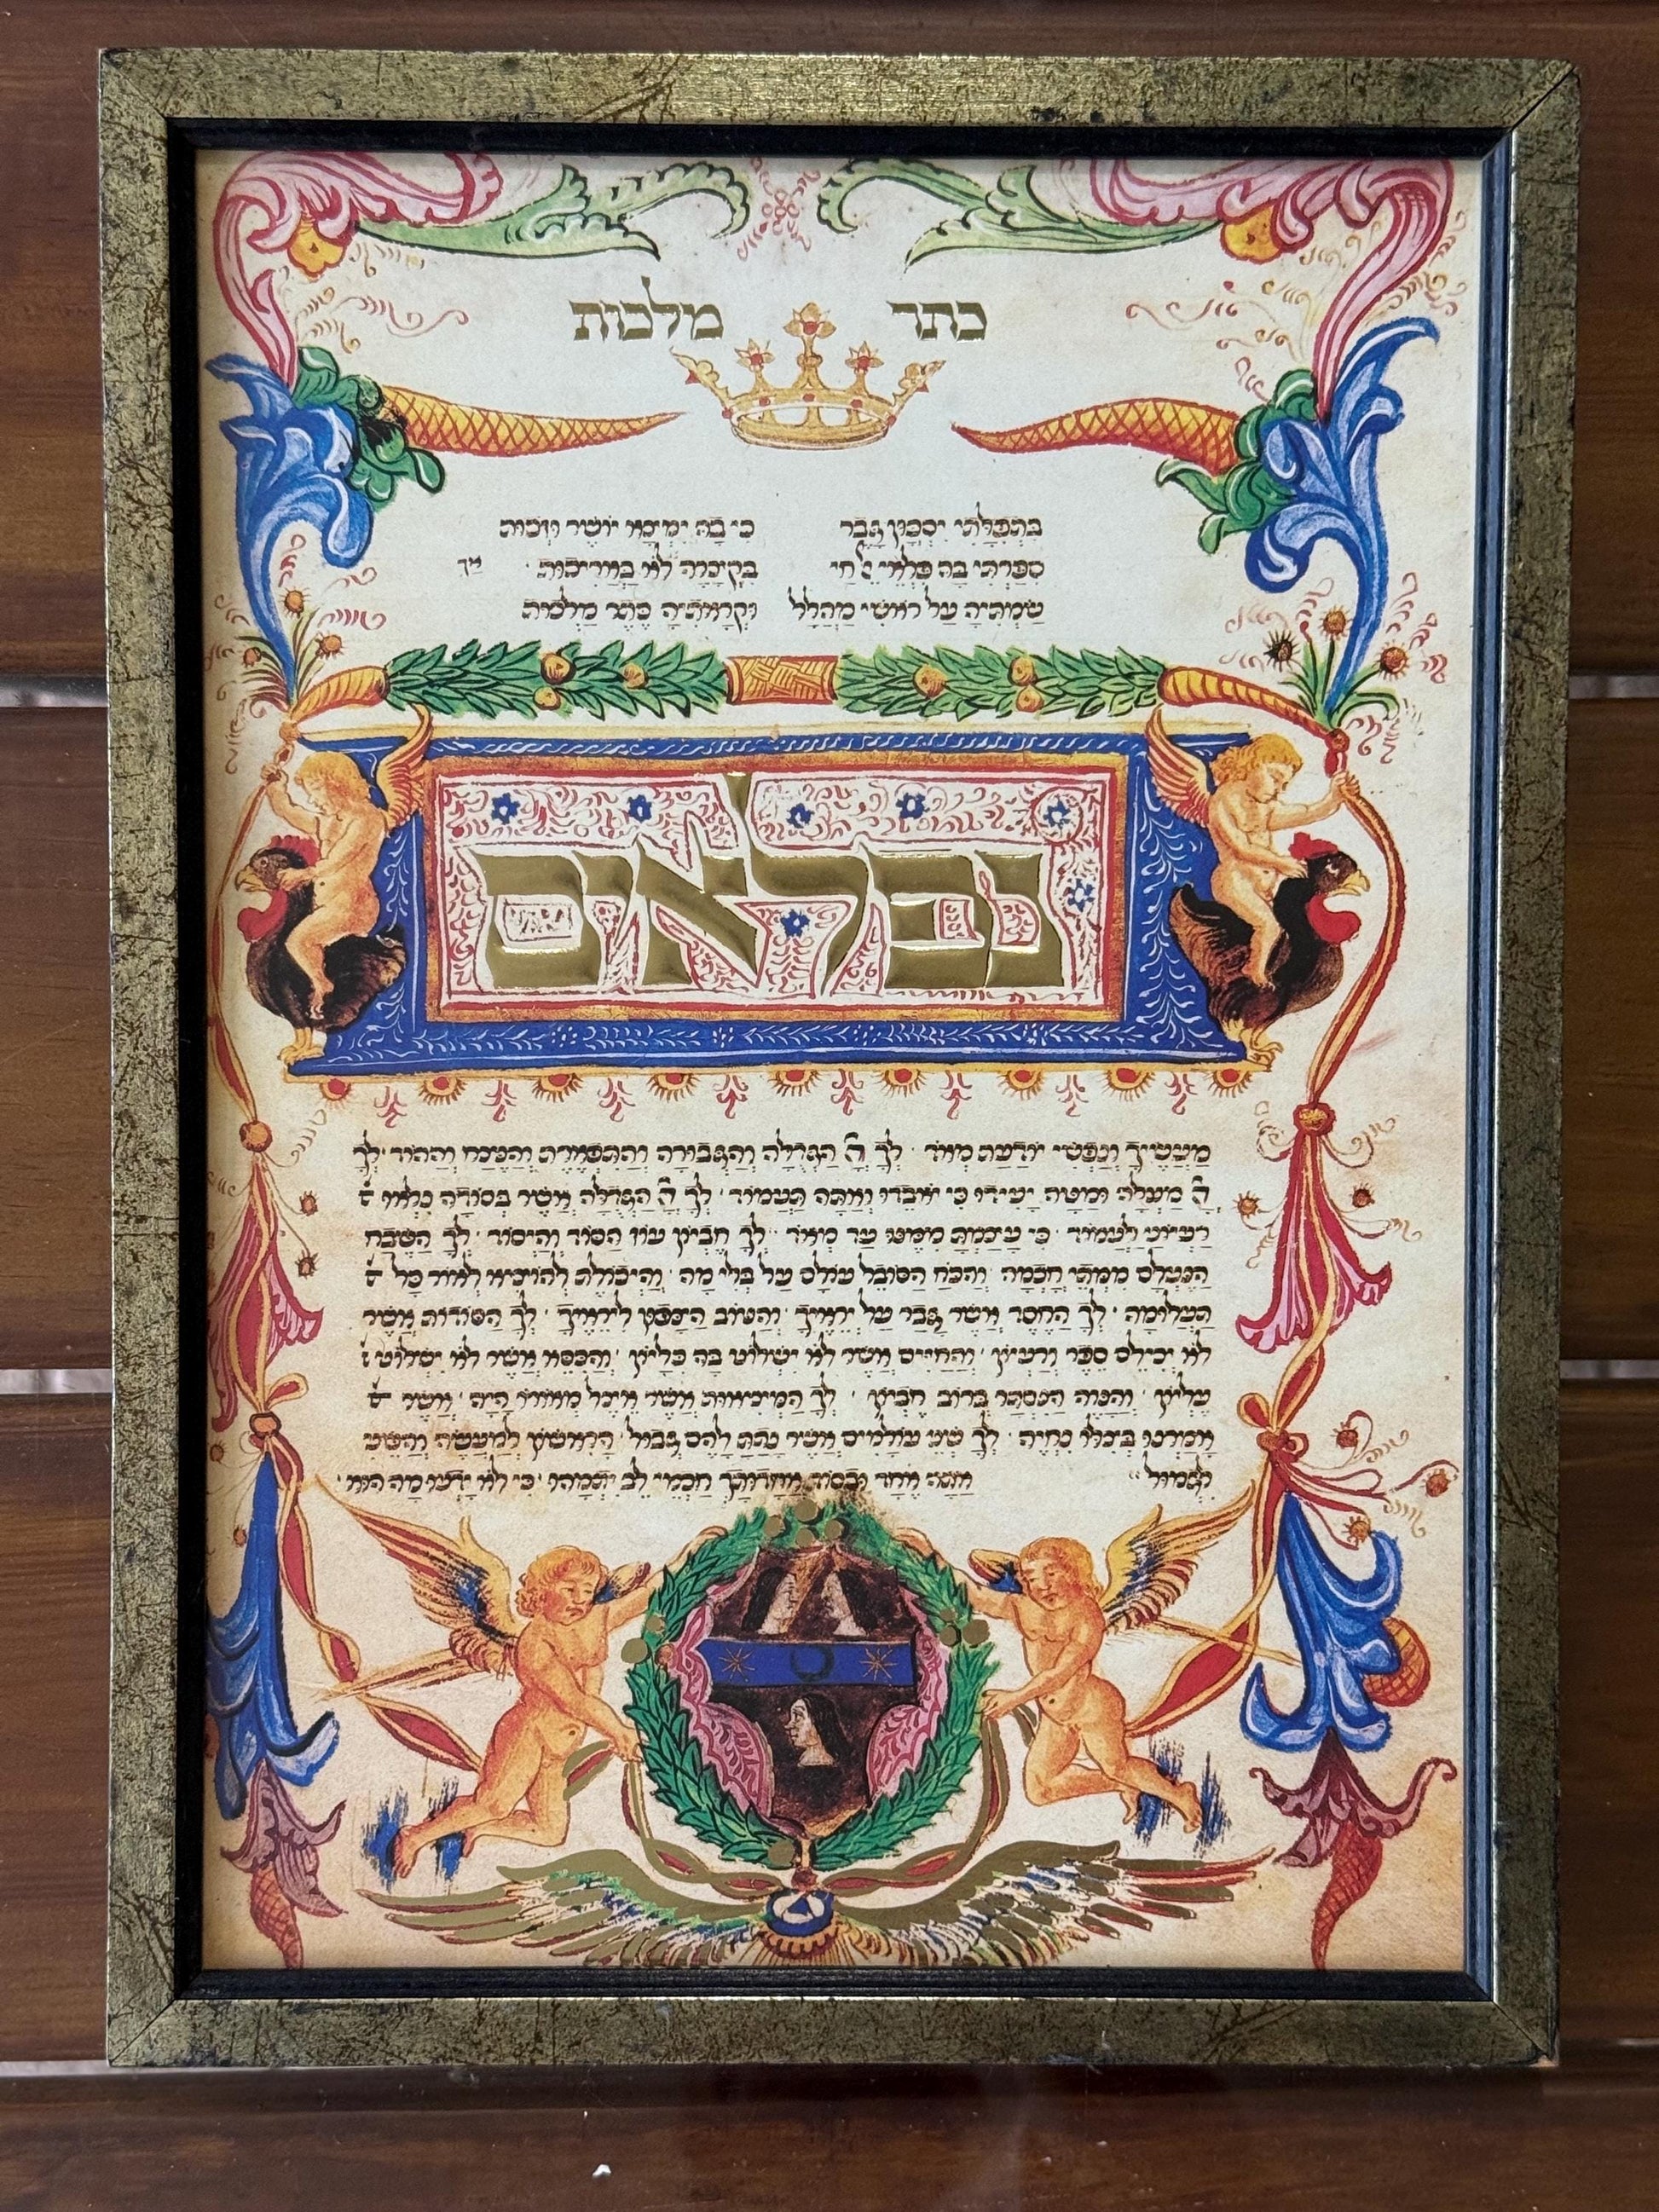 כתר מלכות
בִּתְפִלָּתִי יִסְכָּן גָּבֶר כִּי בָהּ יוֹשֶׁר וְזָכוּת
סִפַּרְתִּי בָהּ פִּלְאֵי אֵל חַי בִּקְצָרָה לֹא בַּאֲרִיכוּת
שַׂמְתִּיהָ עַל רֹאשִׁי מַהֲלָל וּקְרָאתִיהָ כֶּתֶר מַלְכוּת
נפלאים
מַעֲשֶׂיךָ וְנַפְשִׁי יוֹדַעַת מְאֹד לְךָ הַגְּדֻלָּה וְהַגְּבוּרָה וְהַתִּפְאֶרֶת וְהַנֵּצַח וְהַהוֹד לְךָ
מַעְלָה וּמַטָּה יָעִידוּ כִּי יֹאבֵדוּ וְאַתָּה תַעֲמוֹד לְךָ הַגְּבוּרָה אֲשֶׁר בְּסוֹדָהּ נִלְאוּ
רַעְיוֹנֵי לַעֲמוֹד כִּי עָצַמְתָּ מִמֶּנּוּ עַד מְאוֹד לְךָ חֶבְיוֹן עוֹז הַסּוֹד וְהַיְסוֹד לְךָ הַשֵּׁם
הַנֶּעְלָם מִמְּתֵי חָכְמָה וְהַכֹּחַ הַסּוֹבֵל עוֹלָם עַל בְּלִי מָה וְהַיְכוֹלֶת לְהוֹצִיא לְאוֹר כָּל
תַּעֲלוּמָה לְךָ הַחֶסֶד אֲשֶׁר גָּבַר עַל יְרֵאֶיךָ וְהַטּוֹב הַצָּפוּן לִירֵאֶיךָ לְךָ הַסּוֹדוֹת אֲשֶׁר
לֹא יְכִילֵם סֵפֶר וְרַעְיוֹן וְהַחַיִּים אֲשֶׁר לֹא יִשְׁלוֹט בָּהּ כִּלָּיוֹן וְהַכִּסֵּא אֲשֶׁר לֹא יִשְׁלוֹט
עֶלְיוֹן וְהַנָּוֶה הַנִּסְתָּר בְּרוֹב חֶבְיוֹן לְךָ הַמְּצִיאוּת אֲשֶׁר מֵצֵל מְאוֹרוֹ הָיָה אֲשֶׁר
אָמַרְנוּ בְּצִלּוֹ נִחְיֶה לְךָ שְׁנֵי עוֹלָמִים אֲשֶׁר נָתַתָּ לָהֶם גְּבוּל הָרִאשׁוֹן לְמַעֲשֶׂה וְהַשֵּׁנִי
לִגְמוּל אַתָּה אֶחָד וּבְסוֹד אַחְדוּתְךָ חַכְמֵי לֵב יִתְמָהוּ כִּי לֹא יָדְעוּ מָה הוּא